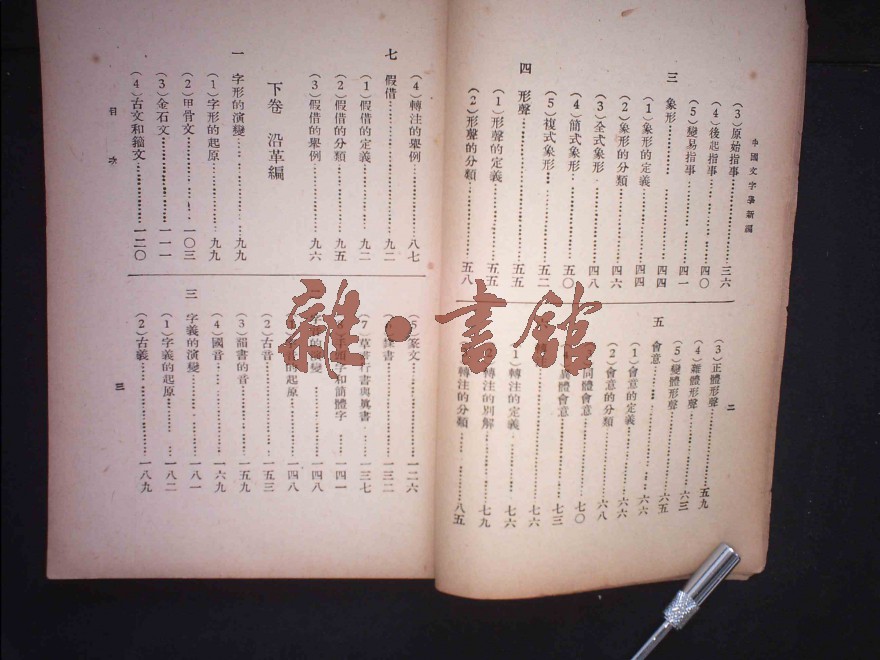 中國文字學新編
(3)原始指事⋯⋯三六
(4)後起指事⋯⋯四〇
(5)變易指事⋯⋯四一
三 象形⋯⋯四四
(1)象形的定義⋯⋯四四
(2)象形的分類⋯⋯四六
(3)全式象形⋯⋯四八
(4)簡式象形⋯⋯五〇
(5)複式象形⋯⋯五二
四 形聲⋯⋯五五
(1)形聲的定義⋯⋯五五
(2)形聲的分類⋯⋯五八
(3)正體形聲⋯⋯五九
(4)雜體形聲⋯⋯六三
(5)變體形聲⋯⋯六五
五 會意⋯⋯六六
(1)會意的定義⋯⋯六六
(2)會意的分類⋯⋯六八
同體會意⋯⋯七〇
異體會意⋯⋯七三
⋯⋯七六
(1)轉注的定義⋯⋯七六
(2)轉注的別解⋯⋯七九
轉注的分類⋯⋯八五
二
(4)轉注的舉例⋯⋯八七
七 假借⋯⋯九二
(1)假借的定義⋯⋯九二
(2)假借的分類⋯⋯九五
(3)假借的舉例⋯⋯九六
下卷 沿革編
一 字形的演變⋯⋯九九
(1)字形的起原⋯⋯九九
(2)甲骨文⋯⋯一〇三
(3)金石文⋯⋯一一一
(4)古文和籀文⋯⋯一二〇
(5)篆文⋯⋯一二六
書⋯⋯一三二
(7)草書行書與眞書⋯⋯一三七
字和簡體字⋯⋯一四一
字音的演變⋯⋯一四八
的起原⋯⋯一四八
(2)古音⋯⋯一五三
(3)韻書的音⋯⋯一五九
(4)國音⋯⋯一六九
三 字義的演變⋯⋯一八一
(1)字義的起原⋯⋯一八二
(2)古義⋯⋯一八九
目次
三
雜·書館